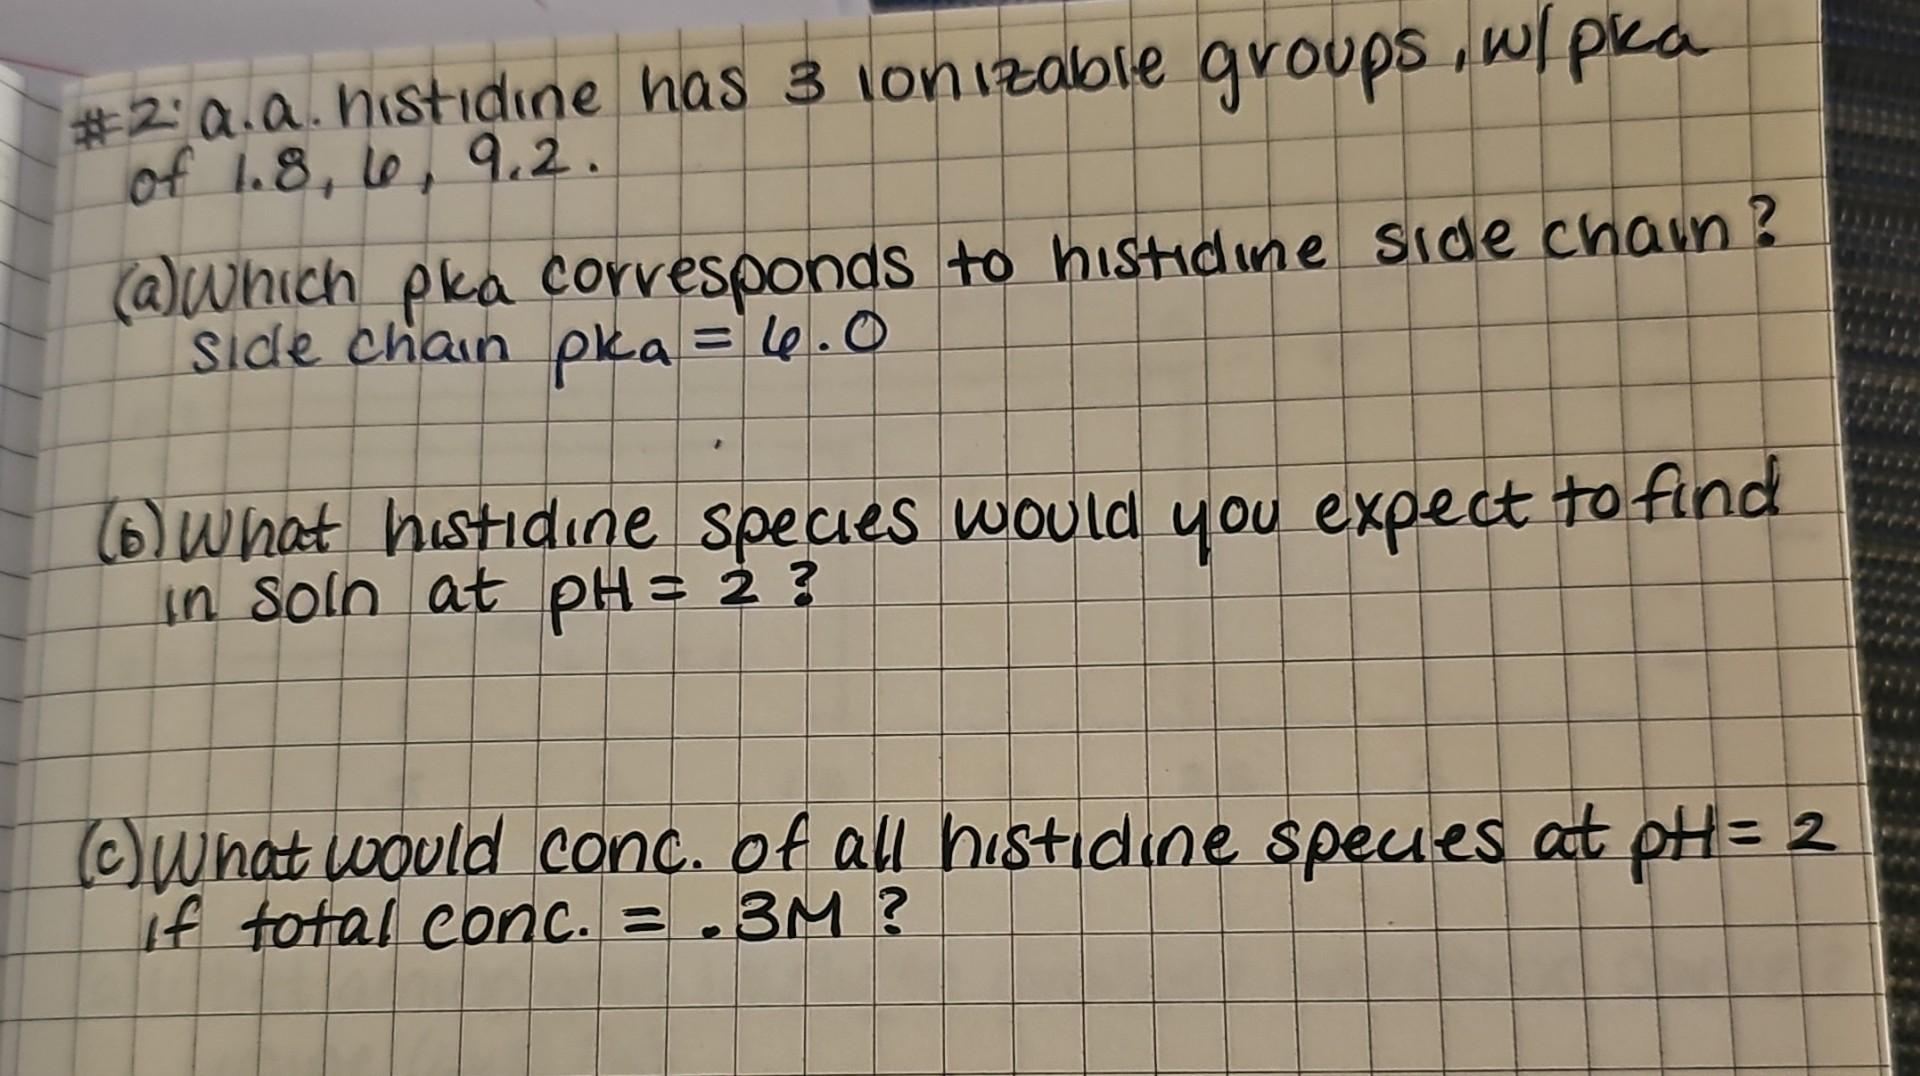 #2: a.a. histidine has 3 ionizable groups, w/ pka
of 1.8, 6, 9.2.
(a) Which pka corresponds to histidine side chain?
side chain pka = 6.0
(b) What histidine species would you expect to find
in soln at pH = 2 ?
(c) What would conc. of all histidine species at pH = 2
if total conc. = .3M ?